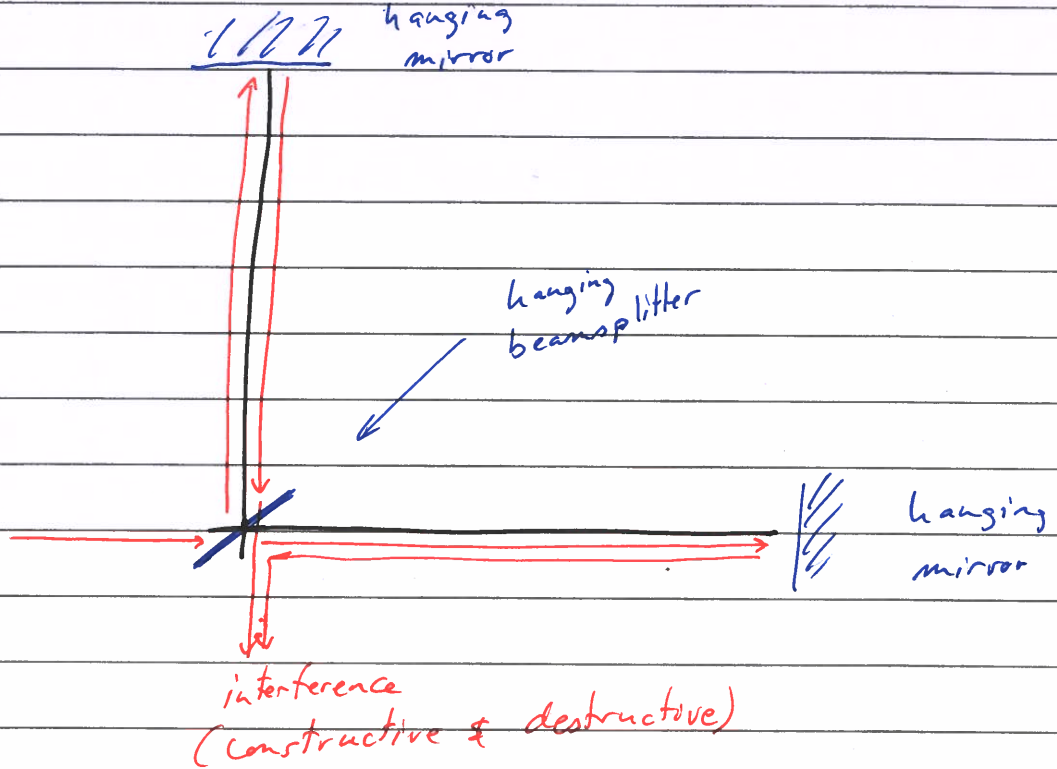 hanging
mirror
hanging
beamsplitter
hanging
mirror
interference
(constructive & destructive)